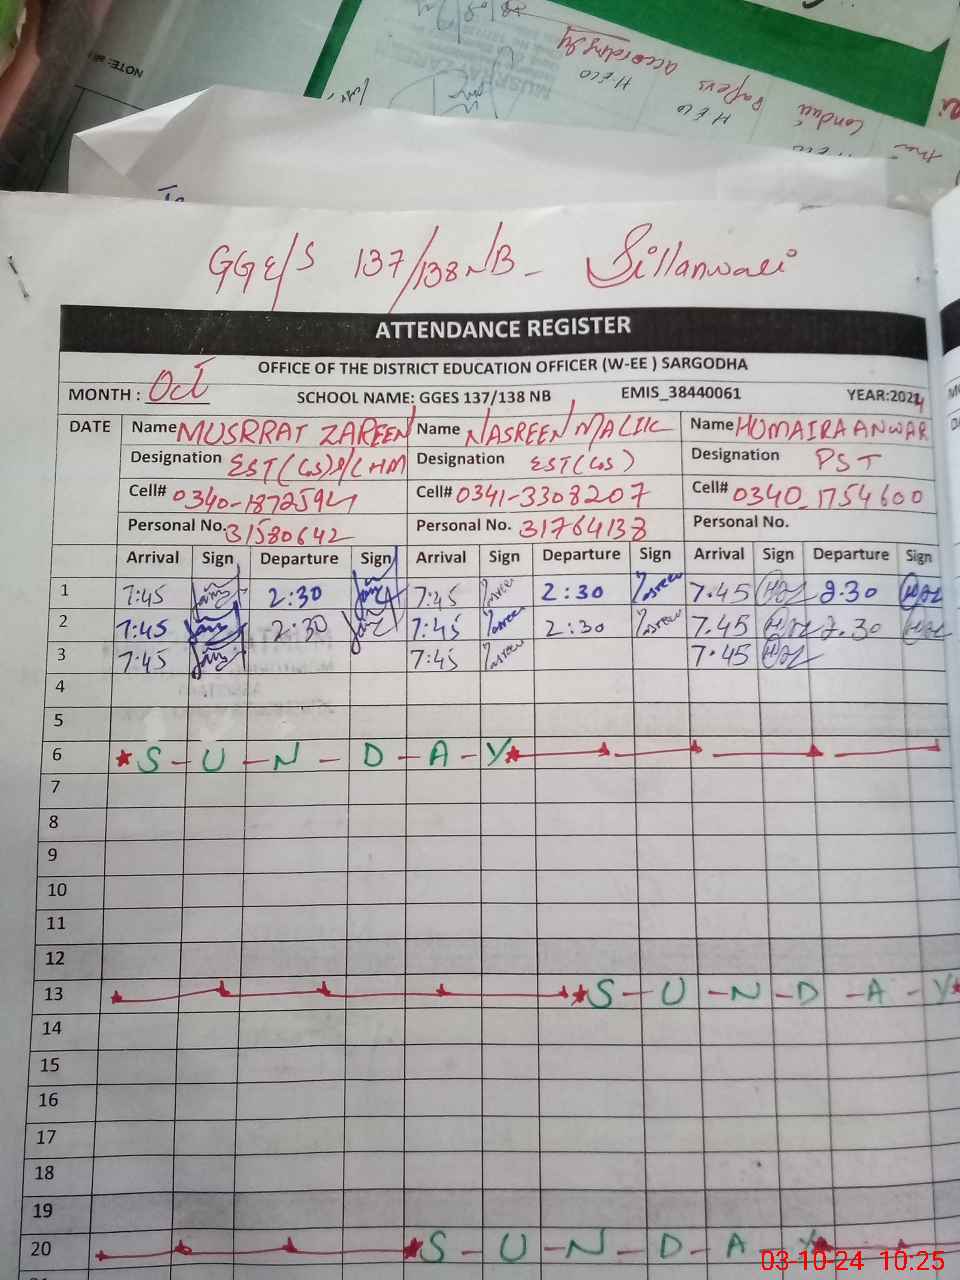 NOTE:
According by
H-ECO
Papers
H ECO
Conduct
GGE/S 137/138 NB - Sillanwali
ATTENDANCE REGISTER
OFFICE OF THE DISTRICT EDUCATION OFFICER (W-EE ) SARGODHA
MONTH : Oct SCHOOL NAME: GGES 137/138 NB EMIS_38440061 YEAR:2024
DATE Name MUSRRAT ZAREEN Name NASREEN MALIK Name HUMAIRA ANWAR
Designation EST (Gs) I/C HM Designation EST (Gs) Designation PST
Cell# 0340-1872594 Cell# 0341-3308207 Cell# 0340_1754600
Personal No. 31580642 Personal No. 31764138 Personal No.
Arrival Sign Departure Sign Arrival Sign Departure Sign Arrival Sign Departure Sign
1 7:45 2:30 7:45 Nasreen 2:30 Nasreen 7.45 2.30
2 7:45 2:30 7:45 Nasreen 2:30 Nasreen 7.45 2.30
3 7:45 7:45 Nasreen 7.45
4
5
6 S - U - N - D - A - Y
7
8
9
10
11
12
13 S - U - N - D - A - Y
14
15
16
17
18
19
20 S - U - N - D - A - Y
03-10-24 10:25